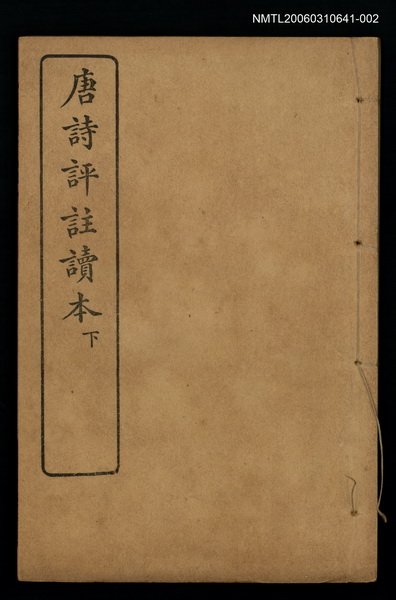 NMTL20060310641-002
唐詩評註讀本下